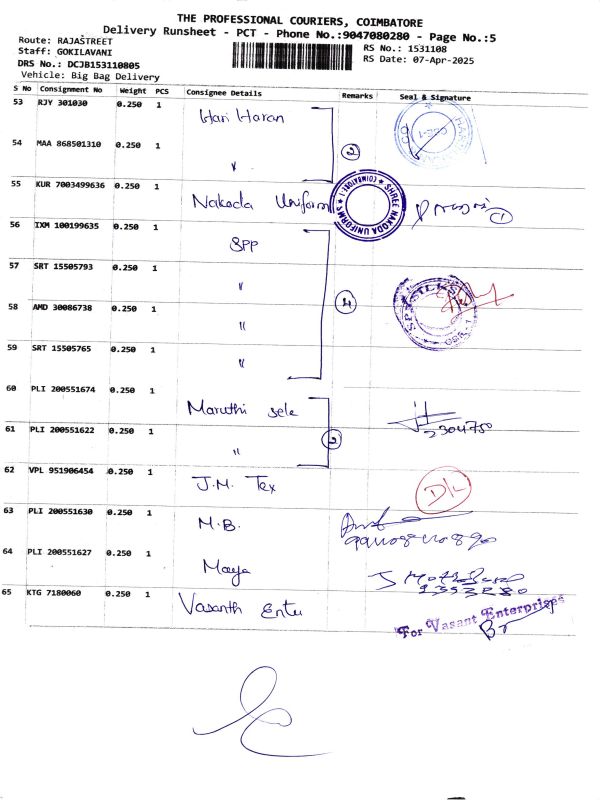 THE PROFESSIONAL COURIERS, COIMBATORE
Delivery Runsheet - PCT - Phone No.:9047080280 - Page No.:5
Route: RAJASTREET
Staff: GOKILAVANI
RS No.: 1531108
DRS No.: DCJB153110805
RS Date: 07-Apr-2025
Vehicle: Big Bag Delivery
S No Consignment No Weight PCS Consignee Details Remarks Seal & Signature
53 RJY 301030 0.250 1 Hari Haran
54 MAA 868501310 0.250 1 〃 2
55 KUR 7003499636 0.250 1 Nakoda Uniform SHREE NAKODA UNIFORMS (COIMBATORE-1) 1
56 IXM 100199635 0.250 1 SPP
57 SRT 15505793 0.250 1 〃
58 AMD 30086738 0.250 1 〃 4
59 SRT 15505765 0.250 1 〃
60 PLI 200551674 0.250 1 Maruthi sele
61 PLI 200551622 0.250 1 〃 2
62 VPL 951906454 0.250 1 J.M. Tex D/L
63 PLI 200551630 0.250 1 M.B.
64 PLI 200551627 0.250 1 Maya
65 KTG 7180060 0.250 1 Vasanth Enter
For Vasant Enterprises